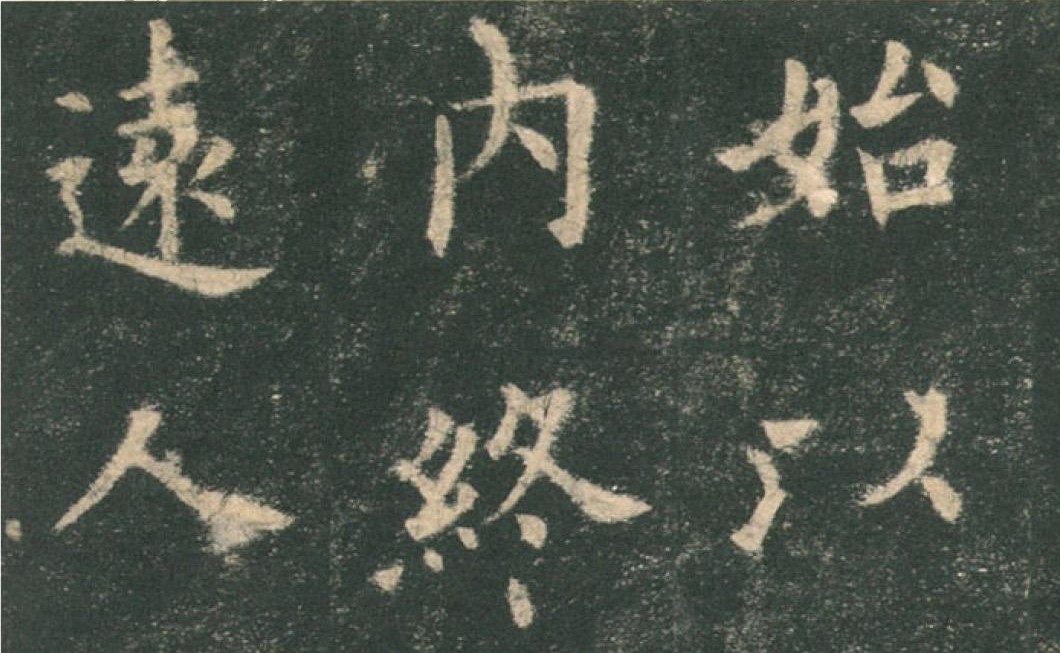 始以
内終
遠人